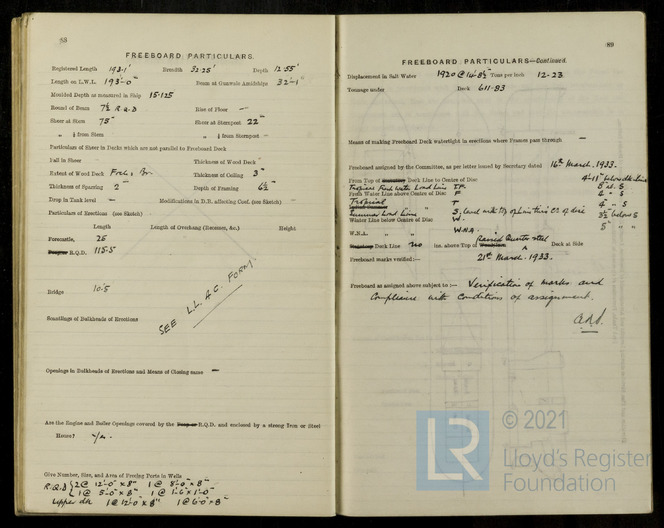 88
FREEBOARD PARTICULARS.
Registered Length 193.1' Breadth 32.25' Depth 12.55'
Length on L.W.L. 193'-0" Beam at Gunwale Amidships 32'-1"
Moulded Depth as measured in Ship 15.125
Round of Beam 7½ R.Q.D Rise of Floor —
Sheer at Stem 75" Sheer at Sternpost 22"
" ⅛ from Stem " ⅛ from Sternpost —
Particulars of Sheer in Decks which are not parallel to Freeboard Deck
Fall in Sheer — Thickness of Wood Deck —
Extent of Wood Deck Thickness of Ceiling 3"
Thickness of Sparring 2 Depth of Framing 6½"
Drop in Tank level — Modifications in D.B. affecting Coef. (see Sketch) —
Particulars of Erections (see Sketch) —
Length Length of Overhang (Recesses, &c.) Height
Forecastle, 25
R.Q.D. 115.5
Bridge 10.5
SEE L.L.A.C. FORM
Scantlings of Bulkheads of Erections
Openings in Bulkheads of Erections and Means of Closing same —
Are the Engine and Boiler Openings covered by the R.Q.D. and enclosed by a strong Iron or Steel
House?
Give Number, Size, and Area of Freeing Ports in Wells
R.Q.D 2 @ 12'-0" x 8" 1 @ 8'-0" x 8"
1 @ 5'-0" x 8" 1 @ 1'-6 x 1'-0"
upper dk 1 @ 12'-0 x 8" 1 @ 6'-0" x 8"
89
FREEBOARD PARTICULARS—Continued.
Displacement in Salt Water 1920 @ 14-8½ Tons per inch 12.23
Tonnage under Deck 611.83
Means of making Freeboard Deck watertight in erections where Frames pass through —
Freeboard assigned by the Committee, as per letter issued by Secretary dated 16th March, 1933.
From Top of Deck Line to Centre of Disc 4'-11" below dk line
Tropical Fresh Water Load Line TF.
Fresh Water Line above Centre of Disc F
Tropical T
Summer Load Line S
Winter Line below Centre of Disc W. 3½ below S
W.N.A. " " W.N.A. 5" " "
Deck Line no ins. above Top of Raised Quarter steel Deck at Side
Freeboard marks verified:— 21st March, 1933.
Freeboard as assigned above subject to:— Verification of marks and
Compliance with conditions of assignment.
© 2021
LR
Lloyd's Register
Foundation